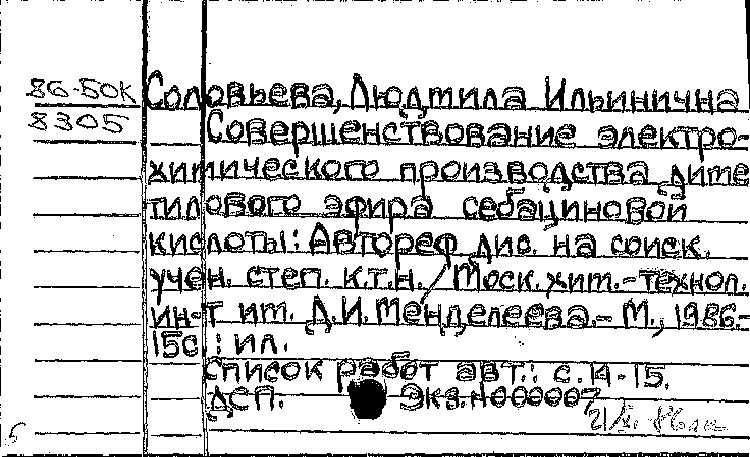 86-БОК
8305
Соловьева, Людмила Ильинична
Совершенствование электро-
химического производства диме
тилового эфира себациновой
кислоты: Автореф дис. на соиск.
учен. степ. к.т.н. / Моск. хим.-технол.
ин-т им. Д.И. Менделеева.- М., 1986.-
15с.: ил.
Список работ авт.: с. 14-15.
ДСП. Экз.N000007
5